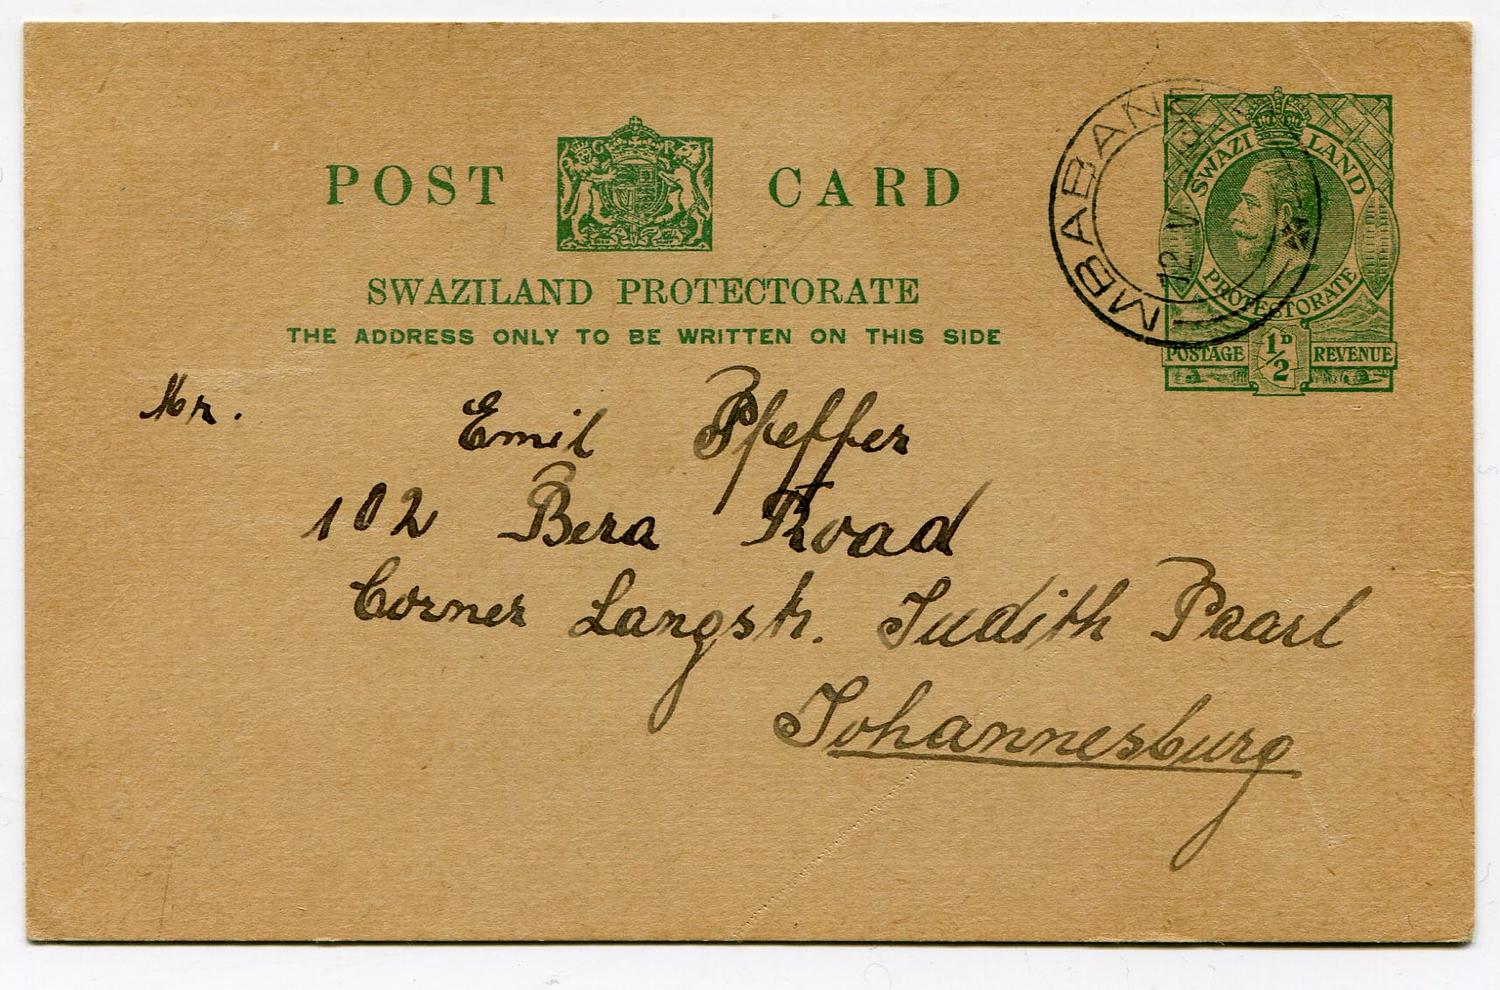 POST CARD
G R
SWAZILAND PROTECTORATE
THE ADDRESS ONLY TO BE WRITTEN ON THIS SIDE
MBABANE
12 V
SWAZILAND
PROTECTORATE
POSTAGE 1/2D REVENUE
Mr. Emil Pfeffer
102 Bera Road
Corner Langstr. Judith Paarl
Johannesburg